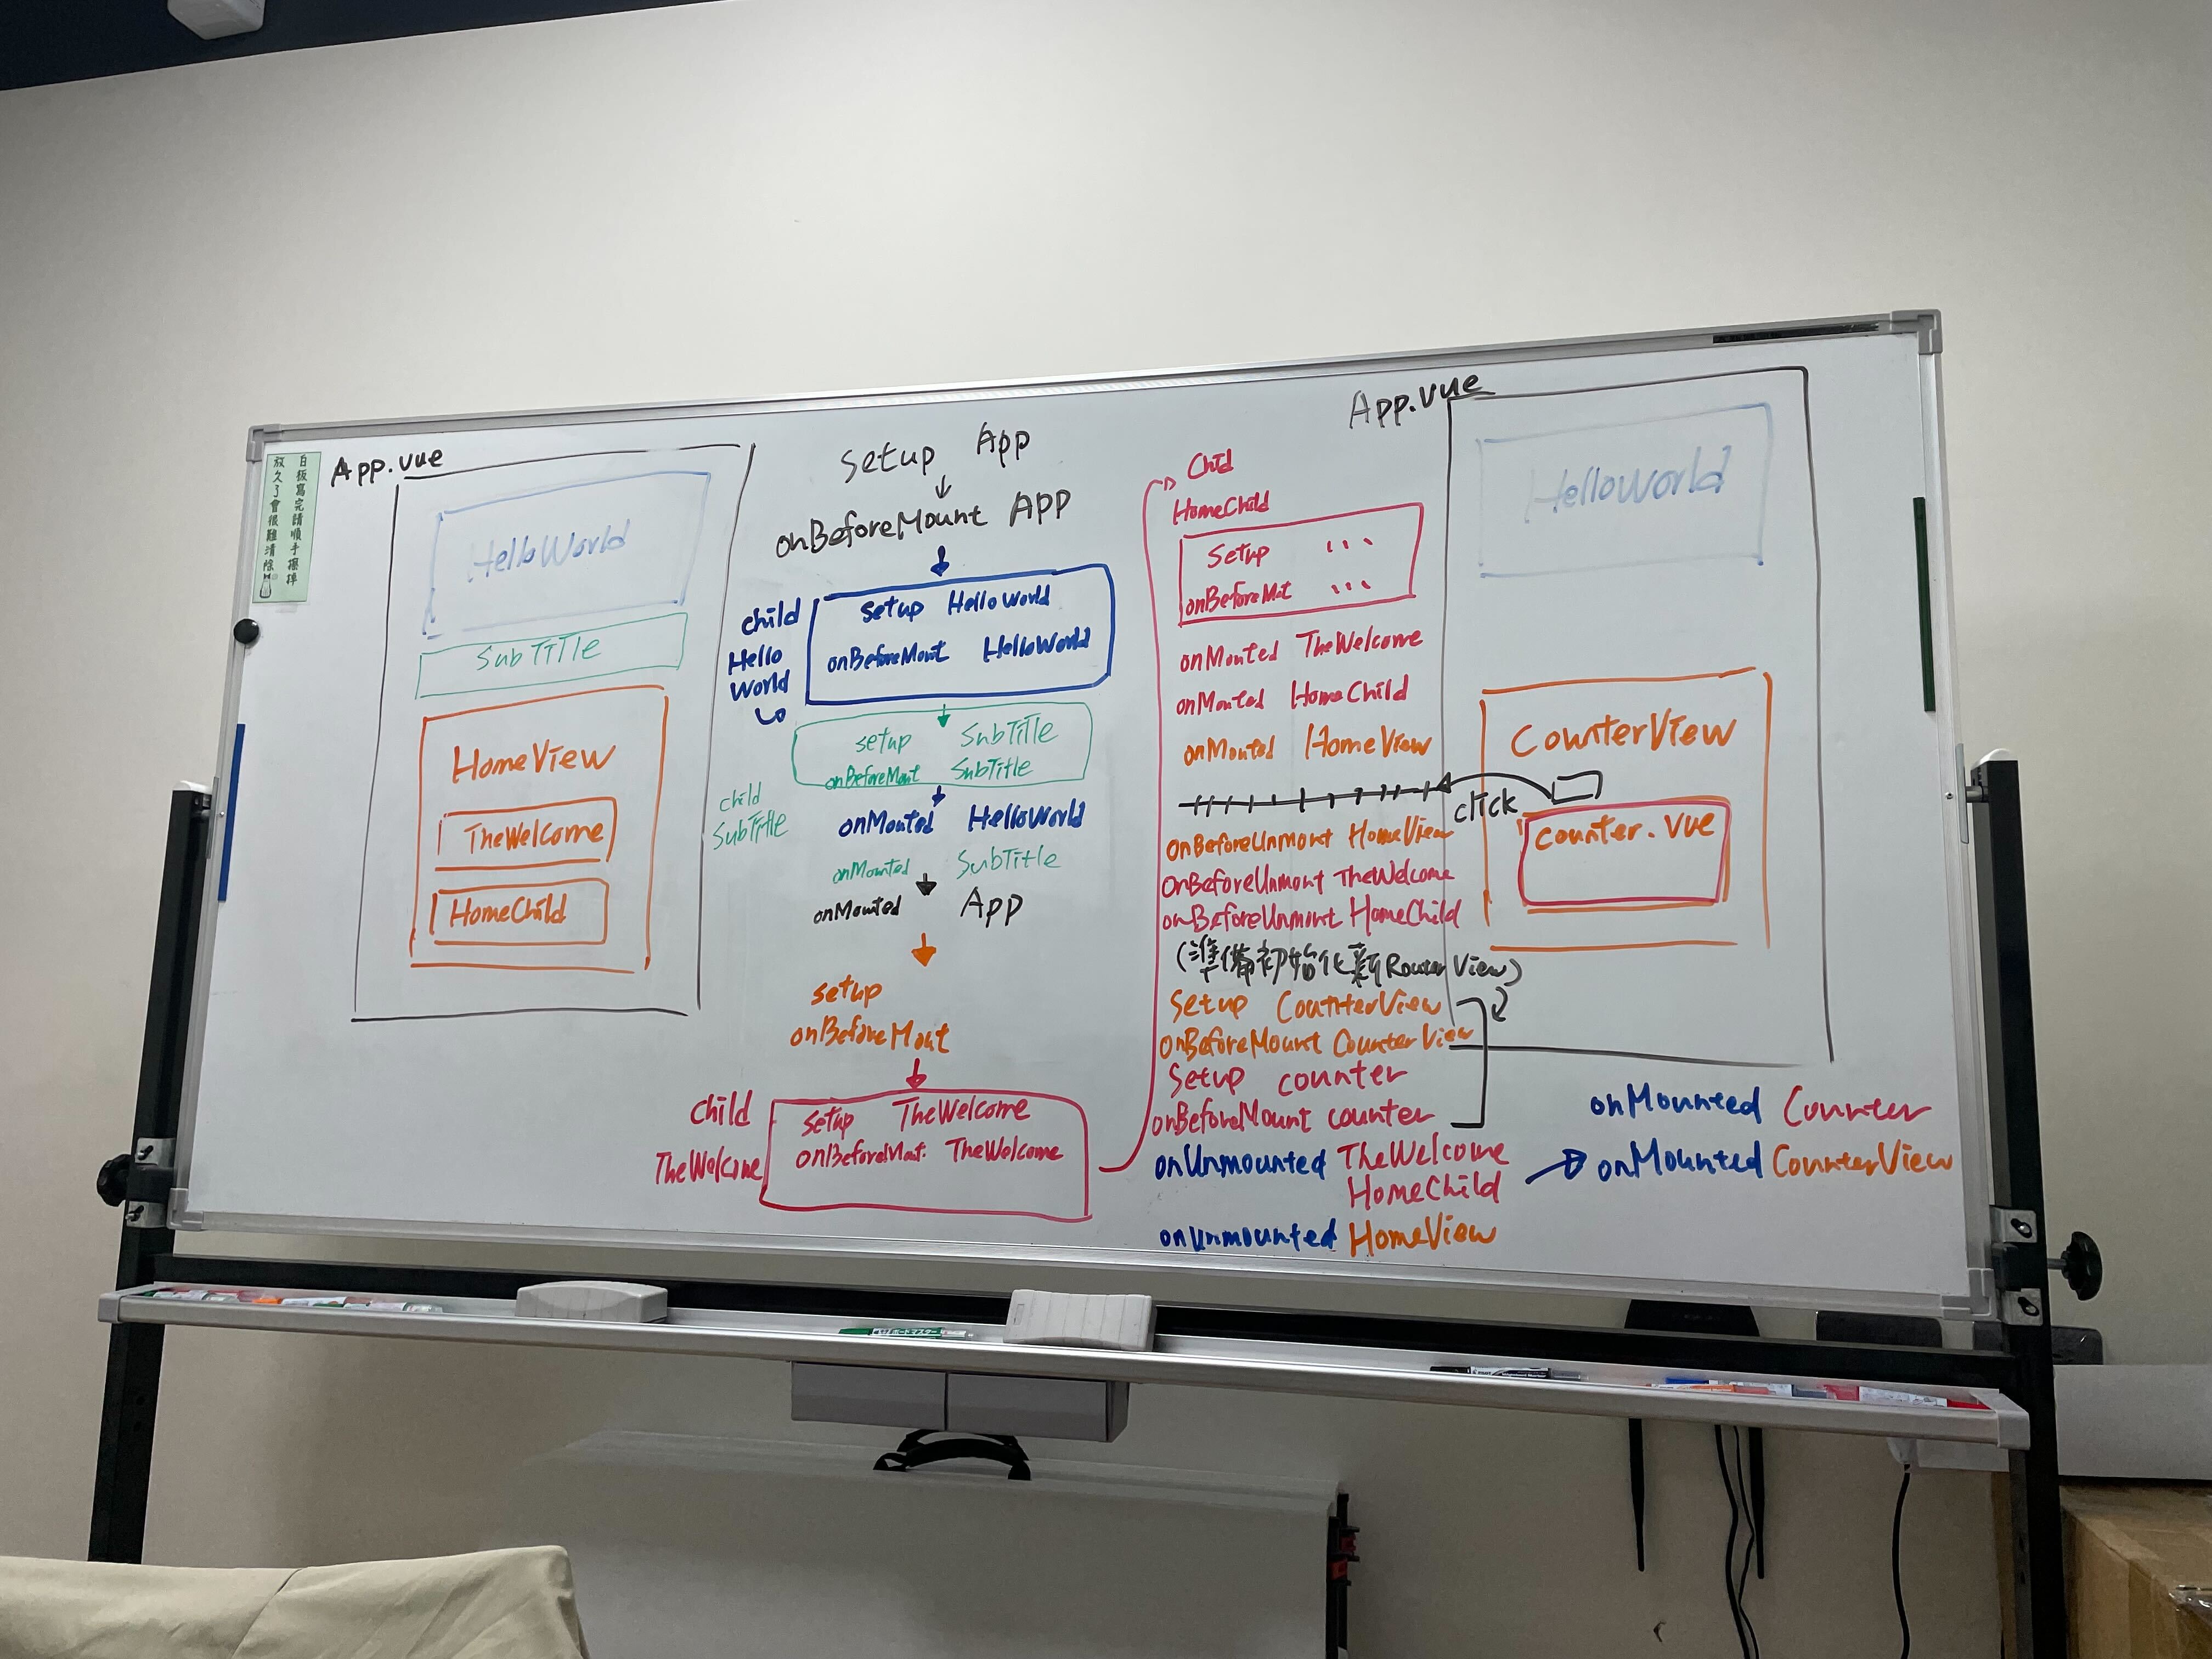 白板寫完請順手擦掉
放久了會很難清除
App.vue
HelloWorld
SubTiTle
HomeView
TheWelcome
HomeChild
setup App
onBeforeMount App
child
Hello
World
setup HelloWorld
onBeforeMount HelloWorld
child
SubTitle
setup SubTitle
onBeforeMount SubTitle
onMouted HelloWorld
onMounted SubTitle
onMouted App
setup
onBeforeMout
child
TheWelcome
setup TheWelcome
onBeforeMout TheWelcome
Child
HomeChild
Setup ...
onBeforeMnt ...
onMouted TheWelcome
onMouted HomeChild
onMouted HomeView
click
onBeforeUnmount HomeView
onBeforeUnmount TheWelcome
onBeforeUnmount HomeChild
(準備初始化新RouterView)
Setup CounterView
onBeforeMount CounterView
Setup counter
onBeforeMount counter
onUnmounted TheWelcome
HomeChild
onUnmounted HomeView
App.vue
HelloWorld
CounterView
counter.vue
onMounted Counter
onMounted CounterView